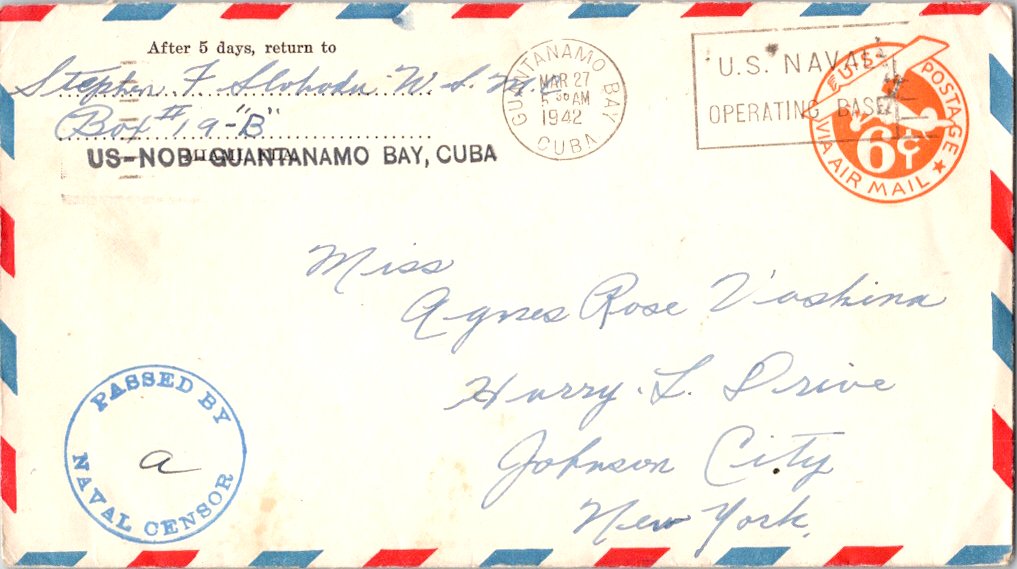 After 5 days, return to
Stephen F Slohoda U.S.M.C.
Box # 19-"B"
US-NOB-GUANTANAMO BAY, CUBA
GUANTANAMO BAY
MAR 27
5 30 AM
1942
CUBA
U.S. NAVAL
OPERATING BASE
U.S. POSTAGE
6¢
VIA AIR MAIL
Miss
Agnes Rose Vashina
Harry L. Drive
Johnson City
New York.
PASSED BY
a
NAVAL CENSOR